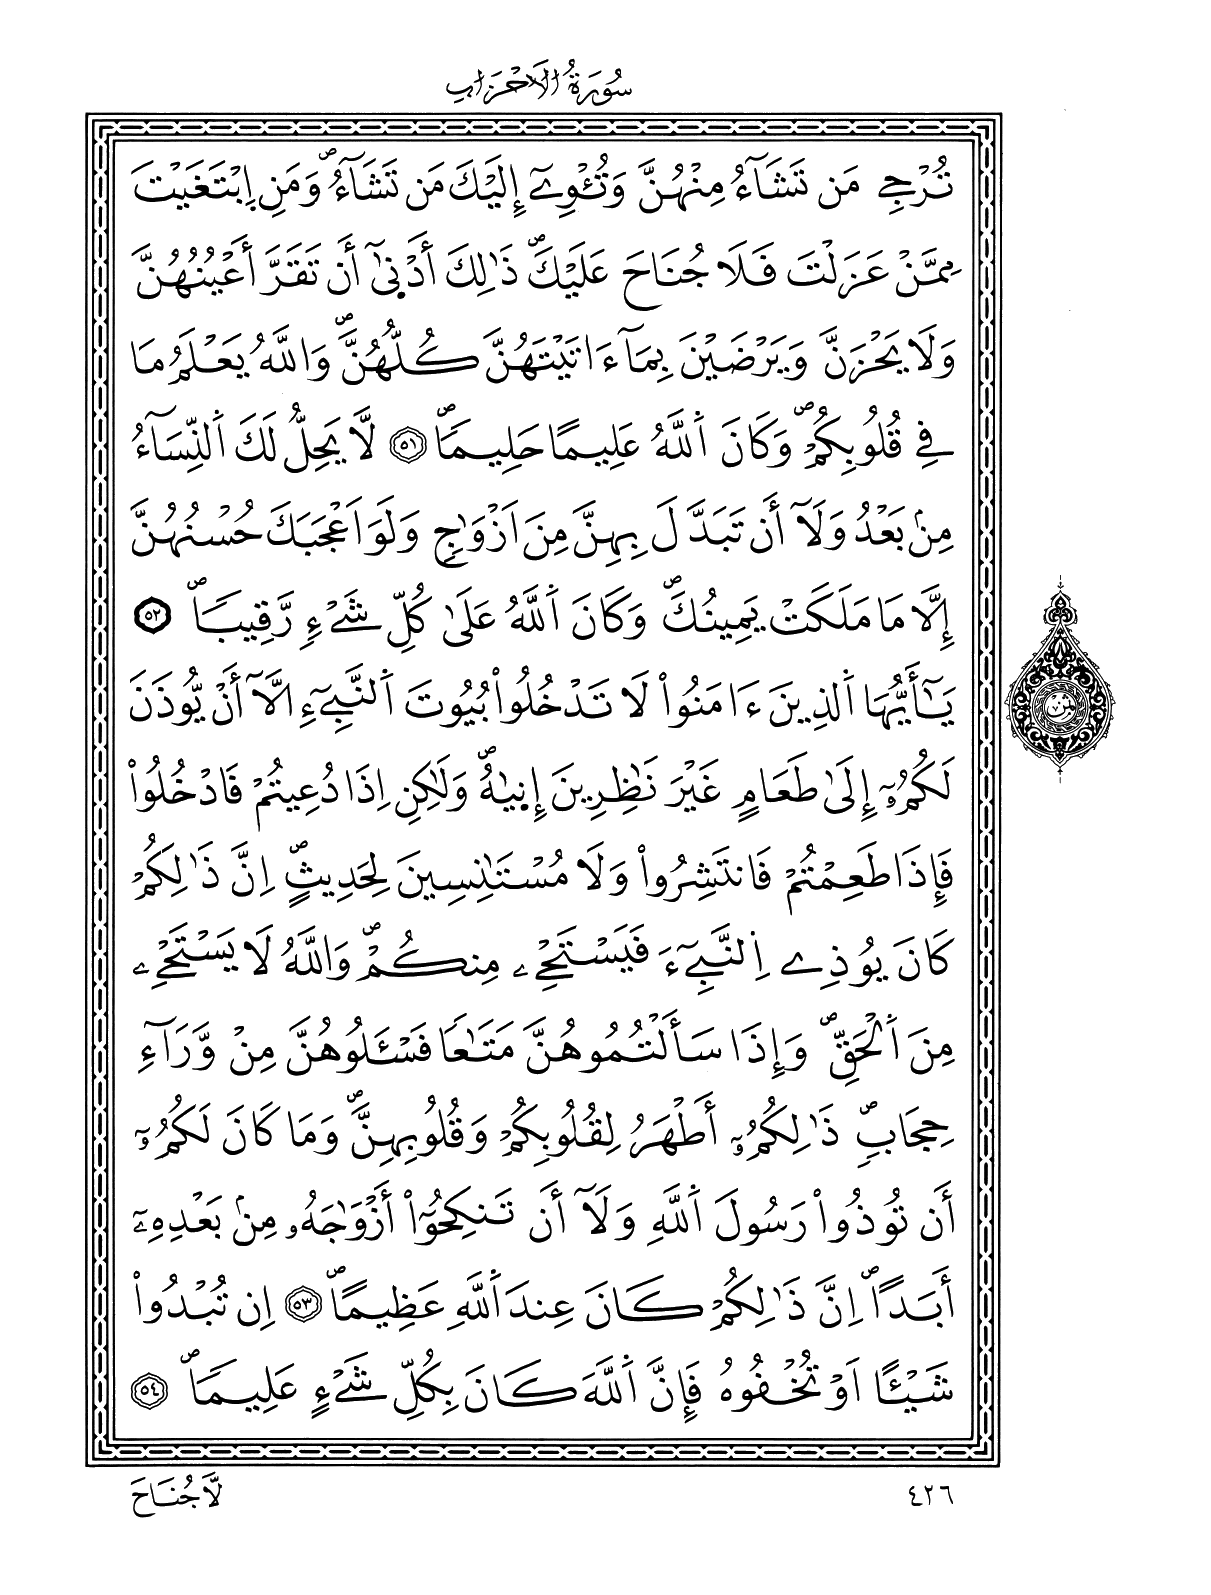 سُورَةُ الْأَحْزَابِ
تُرْجِے مَن تَشَآءُ مِنْهُنَّ وَتُـْٔوِےٓ إِلَيْكَ مَن تَشَآءُۖ وَمَنِ اِبْتَغَيْتَ
مِمَّنْ عَزَلْتَ فَلَا جُنَاحَ عَلَيْكَۖ ذَٰلِكَ أَدْن۪يٰٓ أَن تَقَرَّ أَعْيُنُهُنَّ
وَلَا يَحْزَنَّ وَيَرْضَيْنَ بِمَآ ءَاتَيْتَهُنَّ كُلُّهُنَّۖ وَاللَّهُ يَعْلَمُ مَا
فِے قُلُوبِكُمْۖ وَكَانَ اَللَّهُ عَلِيمًا حَلِيمًاۖ ٥١ لَّا يَحِلُّ لَكَ اَلنِّسَآءُ
مِنۢ بَعْدُ وَلَآ أَن تَبَدَّلَ بِهِنَّ مِنَ اَزْوَٰجٖ وَلَوَ اَعْجَبَكَ حُسْنُهُنَّ
إِلَّا مَا مَلَكَتْ يَمِينُكَۖ وَكَانَ اَللَّهُ عَلَىٰ كُلِّ شَےْءٖ رَّقِيبًاۖ ٥٢
يَٰٓأَيُّهَا اَلذِينَ ءَامَنُواْ لَا تَدْخُلُواْ بُيُوتَ اَلنَّبِےٓءِ الَّآ أَنْ يُّوذَنَ
لَكُمُۥٓ إِلَىٰ طَعَامٍ غَيْرَ نَٰظِرِينَ إِن۪يٰهُۖ وَلَٰكِنِ اِذَا دُعِيتُمْ فَادْخُلُواْ
فَإِذَا طَعِمْتُمْ فَانتَشِرُواْ وَلَا مُسْتَـٰٔنِسِينَ لِحَدِيثٍۖ اِنَّ ذَٰلِكُمْ
كَانَ يُوذِے اِلنَّبِےٓءَ فَيَسْتَحْےِۦ مِنكُمْۖ وَاللَّهُ لَا يَسْتَحْےِۦ
مِنَ اَلْحَقِّۖ وَإِذَا سَأَلْتُمُوهُنَّ مَتَٰعًا فَسْـَٔلُوهُنَّ مِنْ وَّرَآءِ
حِجَابٖۖ ذَٰلِكُمُۥٓ أَطْهَرُ لِقُلُوبِكُمْ وَقُلُوبِهِنَّۖ وَمَا كَانَ لَكُمُۥٓ
أَن تُوذُواْ رَسُولَ اَللَّهِ وَلَآ أَن تَنكِحُوٓاْ أَزْوَٰجَهُۥ مِنۢ بَعْدِهِۦٓ
أَبَدًاۖ اِنَّ ذَٰلِكُمْ كَانَ عِندَ اَللَّهِ عَظِيمًاۖ ٥٣ اِن تُبْدُواْ
شَيْـًٔا اَوْ تُخْفُوهُ فَإِنَّ اَللَّهَ كَانَ بِكُلِّ شَےْءٍ عَلِيمًاۖ ٥٤
لَّا جُنَاحَ
٤٢٦